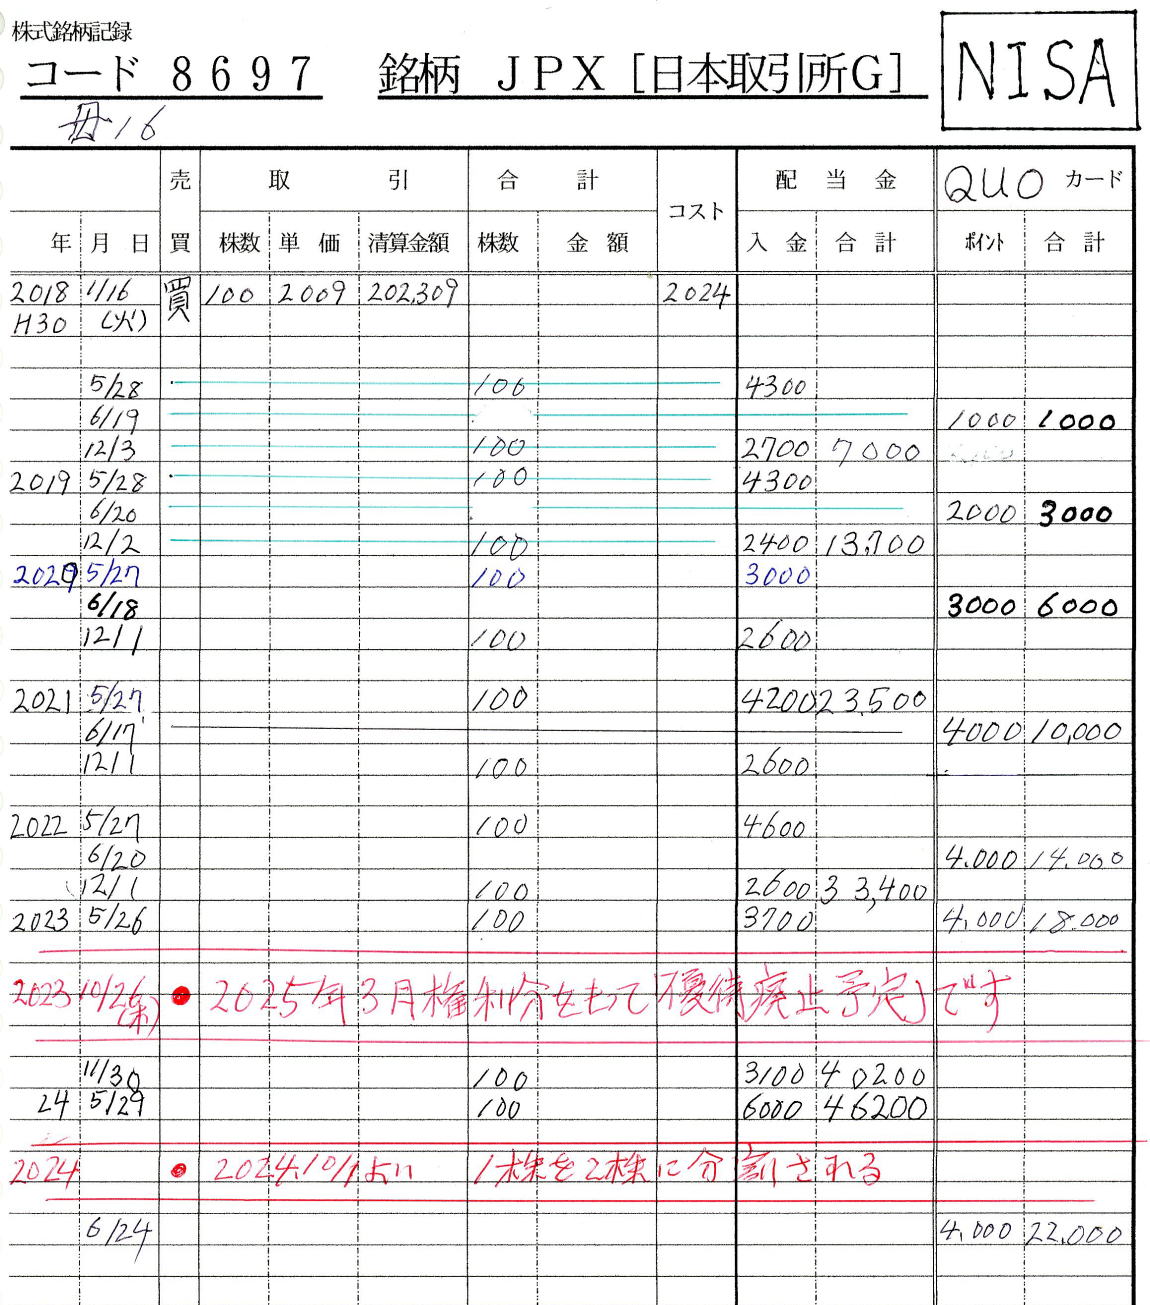 株式銘柄記録
コード 8697 銘柄 JPX [日本取引所G] NISA
毋16
売 取 引 合 計 コスト 配 当 金 QUO カード
年 月 日 買 株数 単 価 清算金額 株数 金 額 入 金 合 計 ポイント 合 計
2018 1/16 買 100 2009 202,309 2024
H30 (火)
5/28 100 4300
6/19 1000 1000
12/3 100 2700 7000
2019 5/28 100 4300
6/20 2000 3000
12/2 100 2400 13,700
2020 5/27 100 3000
6/18 3000 6000
12/1 100 2600
2021 5/27 100 4200 23,500
6/17 4000 10,000
12/1 100 2600
2022 5/27 100 4600
6/20 4,000 14,000
12/1 100 2600 33,400
2023 5/26 100 3700 4,000 18,000
2023 10/26(木) ● 2025年3月権利分をもって「優待廃止予定」です
11/30 100 3100 40200
24 5/29 100 6000 46200
2024 ● 2024.10/1より 1株を2株に分割される
6/24 4,000 22,000